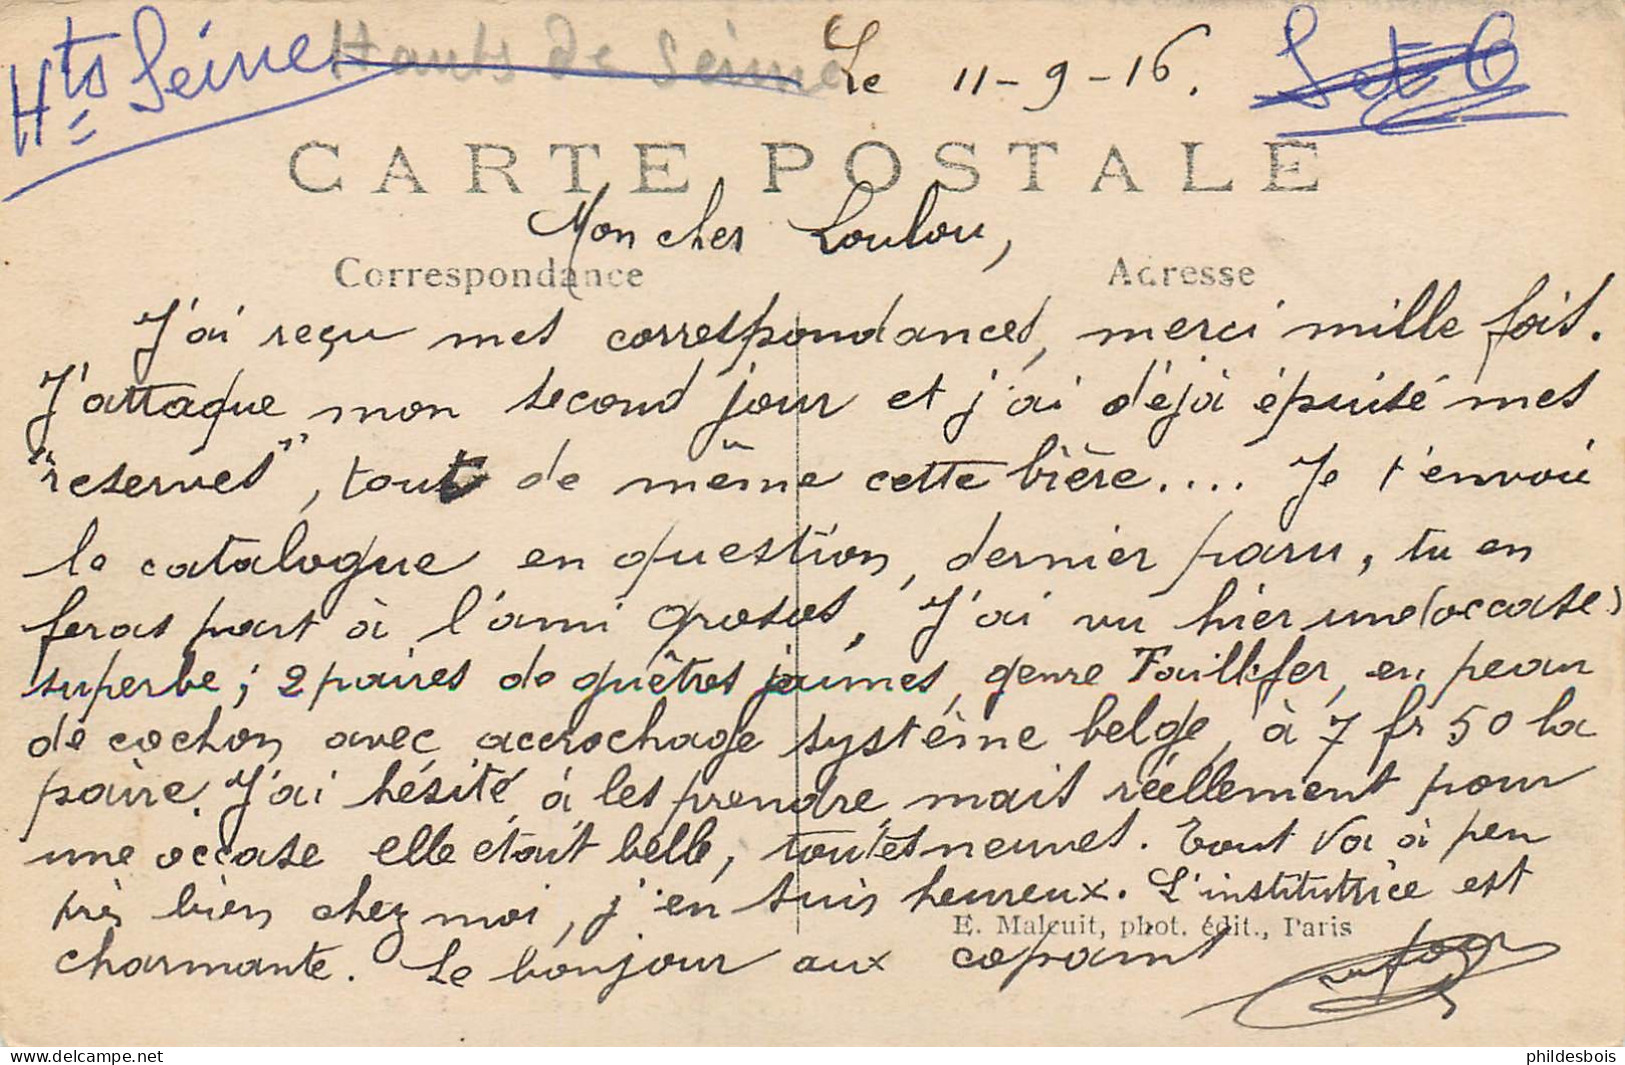 Hts Seine Hauts de Seine Le 11-9-16. S et O
CARTE POSTALE
Mon cher Loulou,
Correspondance Adresse
J'ai reçu mes correspondances, merci mille fois.
J'attaque mon second jour et j'ai déjà épuisé mes
"reserves", tout de même cette bière.... Je t'envoie
le catalogue en question, dernier paru, tu en
feras part à l'ami J'ai vu hier une (occase)
superbe; 2 paires de guêtres jaunes, genre Taillefer, en peau
de cochon avec accrochage système belge, à 7 fr 50 la
paire. J'ai hésité à les prendre, mais réellement pour
une occase elle était belle, toutes neuves. Tout va à peu
près bien chez moi, j'en suis heureux. L'institutrice est
E. Malcuit, phot. édit., Paris
charmante. Le bonjour aux copains
phildesbois
https://www.delcampe.net